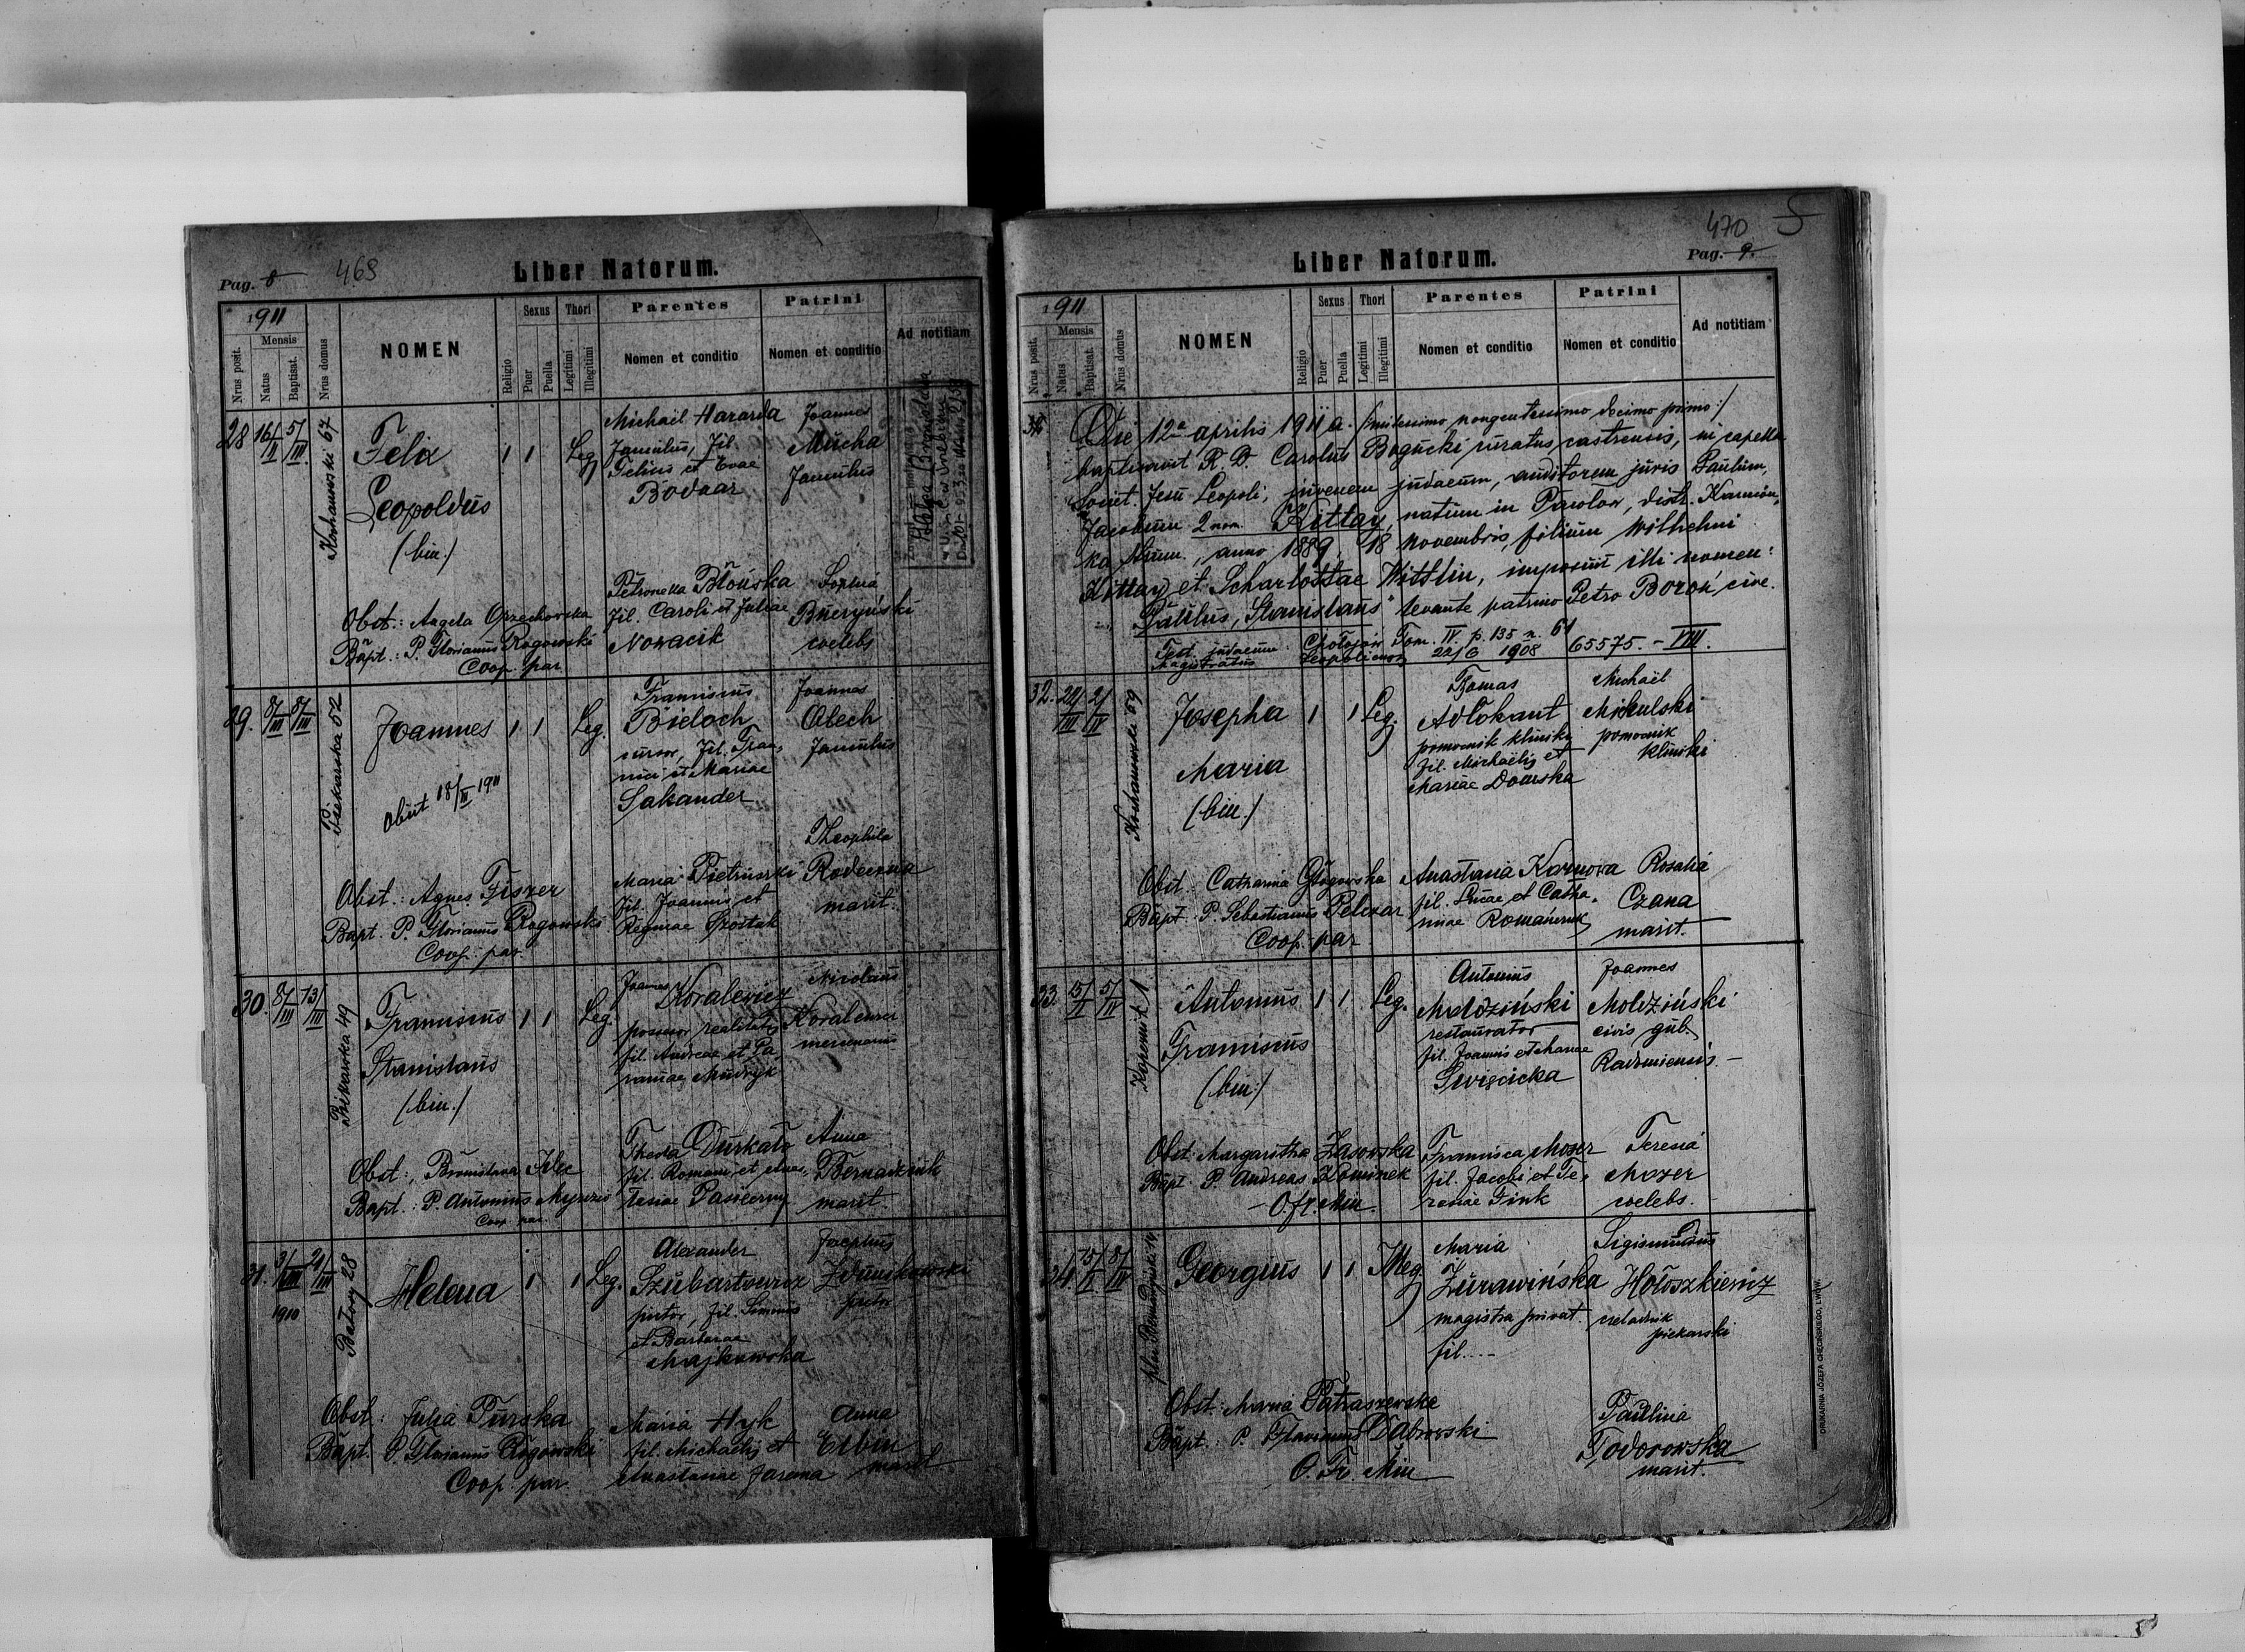 Pag. 8
469
Liber Natorum.
1911
Nrus posit.
Mensis
Natus
Baptisat.
Nrus domus
NOMEN
Religio
Sexus
Puer
Puella
Thori
Legitimi
Illegitimi
Parentes
Nomen et conditio
Patrini
Nomen et conditio
Ad notitiam
28
16/II
5/III
Kochanowski 67
Felix
Leopoldus
(bin.)
1 1 Leg
Michael Hararda
famulus, fil.
Felicis et Evae
Bodnar
Petronela Błońska
fil. Caroli et Juliae
Nowacik
Joannes
Mucha
famulus
Sophia
coelebs
Obst.: Angela Orzechowska
Bapt.: P. Florianus Rogowski
Coop. par
29.
8/III
8/III
Piekarska 52
Joannes
1 1 Leg.
Obiit 18/III 1911
Franciscus
Bieloch
cursor, fil. Fran-
cisci et Mariae
Salzander
Maria Pietruszki
fil. Joannis et
Reginae Szostak
Joannes
Olech
famulus
Theophila
marit.
Obst.: Agnes Fiszer
Bapt. P. Florianus Rogowski
Coop. par.
30.
8/III
13/III
Piekarska 49
Franciscus
Stanislaus
(bin.)
1 1 Leg.
Joannes
Koralewicz
possesor realitatis
fil. Andreae et Pa-
raniae Mudryk
Thecla Durkało
fil. Romani et Anas-
tasiae Pancerny
Nicolaus
Koralewicz
mercenarius
Anna
Bernadziuk
marit.
Obst.: Bronislava Filec
Bapt.: P. Antonius
Coop. par.
31.
3/VIII
1910
21/III
Batory 28
Helena
1 1 Leg.
Alexander
Szubartowicz
pictor, fil. Simonis
et Barbarae
Majkowska
Maria Hyk
fil. Michaelis et
Anastasiae Jarema
Josephus
Zdunikowski
pictor
Anna
Elbin
marit
Obst.: Julia Purska
Bapt. P. Florianus Rogowski
Coop. par
470
Pag. 9.
Liber Natorum.
1911
Nrus posit.
Mensis
Natus
Baptisat.
Nrus domus
NOMEN
Religio
Sexus
Puer
Puella
Thori
Legitimi
Illegitimi
Parentes
Nomen et conditio
Patrini
Nomen et conditio
Ad notitiam
Die 12a aprilis 1911 a. /:millesimo nongentesimo decimo primo:/
baptisavit R. D. Carolus Bogucki curatus castrensis, in capella
Societ. Jesu Leopoli, juvenem judaeum, auditorem juris Paulum,
Jacobum 2 nom. Kittay, natum in Pawlow, distr. Kamion-
ka Strum., anno 1889, 18 novembris, filium Wilhelmi
Kittay et Scharlottae Wittlin, imposuit illi nomen:
"Paulus, Stanislaus" levante patrino Petro Boroń cive.
Test. judaeum Chołojów Tom. IV. p. 135 n. 61
Magistratus Leopoliensis 22/6 1908 65575. - VIII.
32.
2/IV
Kochanowski 69
Josepha
Maria
(bin.)
1 1 Leg.
Tomas
Adłokant
pomocnik kliniki
fil. Michaëlis et
Mariae Dourska
Anastasia Karmova
fil. Lucae et Catha-
rinae Romańczuk
Michaël
Mikulski
pomocnik
kliniki
Rosalia
Czana
marit.
Obst.: Catharina Głogowska
Bapt. P. Sebastianus Pelczar
Coop. par
33.
5/II
5/IV
Antonius
Franciscus
(bin.)
1 1 Leg.
Antonius
Mołdziński
restaurator
fil. Joannis et Mariae
Swięcicka
Francisca Mozer
fil. Jacobi et Te-
resiae Fink
Joannes
Mołdziński
civis gub.
Radomiensis -
Teresia
Mozer
coelebs.
Obst. Margaritha Zasowska
Bapt. P. Andreas Kominek
O. fr. Min.
34.
15/II
8/IV
Georgius
1 1 Illeg
Maria
Żurawińska
magistra privat.
fil....
Sigismundus
Hołoszkiewicz
czeladnik
piekarski
Paulina
Todorowska
marit.
Obst.: Maria Patraszewska
Bapt.: P. Florianus Dabrowski
O. Fr. Min
DRUKARNIA JÓZEFA CHĘCIŃSKIEGO, LWÓW.